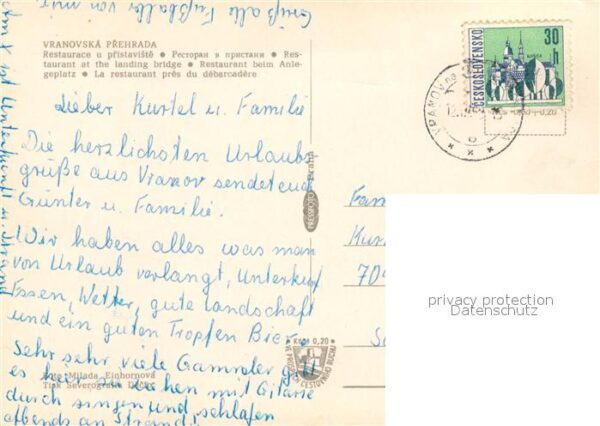 Grüße alle Fußballer von mir
VRANOVSKÁ PŘEHRADA
Restaurace u přístaviště • Ресторан в пристани • Res-
taurant at the landing bridge • Restaurant beim Anle-
geplatz • La restaurant près du débarcadère
Lieber Kurtel u. Familie
Die herzlichsten Urlaubs
grüße aus Vranov sendet euch
Günter u. Familie.
Wir haben alles was man
von Urlaub verlangt, Unterkunf
Essen, Wetter, gute Landschaft
und ein guten Tropfen Bier.
Sehr sehr viele Gammler gi
es hier, sie ziehen mit Gitarre
durch singen und schlafen
abends an Strand
Foto Milada Einhornová
Tisk Severografia Děčín
PRESSFOTO Praha
Kčs 0,20
ČESKOSLOVENSKO
30 h
VRANOV
Fam
Kur
70
privacy protection
Datenschutz